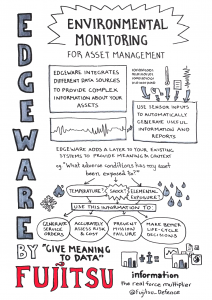 EDGEWARE
ENVIRONMENTAL
MONITORING
FOR ASSET MANAGEMENT
EDGEWARE INTEGRATES
DIFFERENT DATA SOURCES
TO PROVIDE COMPLEX
INFORMATION ABOUT YOUR
ASSETS
USE SENSOR INPUTS
TO AUTOMATICALLY
GENERATE USEFUL
INFORMATION AND
REPORTS
EDGEWARE ADDS A LAYER TO YOUR EXISTING
SYSTEMS TO PROVIDE MEANING & CONTEXT
eg "What adverse conditions has my asset
been exposed to?"
TEMPERATURE?
SHOCK?
ELEMENTAL
EXPOSURE?
USE THIS INFORMATION TO
GENERATE
SERVICE
ORDERS
ACCURATELY
ASSESS RISK
& COST
PREVENT
MISSION
FAILURE
MAKE BETTER
LIFE-CYCLE
DECISIONS
BY
"GIVE MEANING
TO DATA"
FUJITSU
information
the real force multiplier
@Fujitsu_Defence